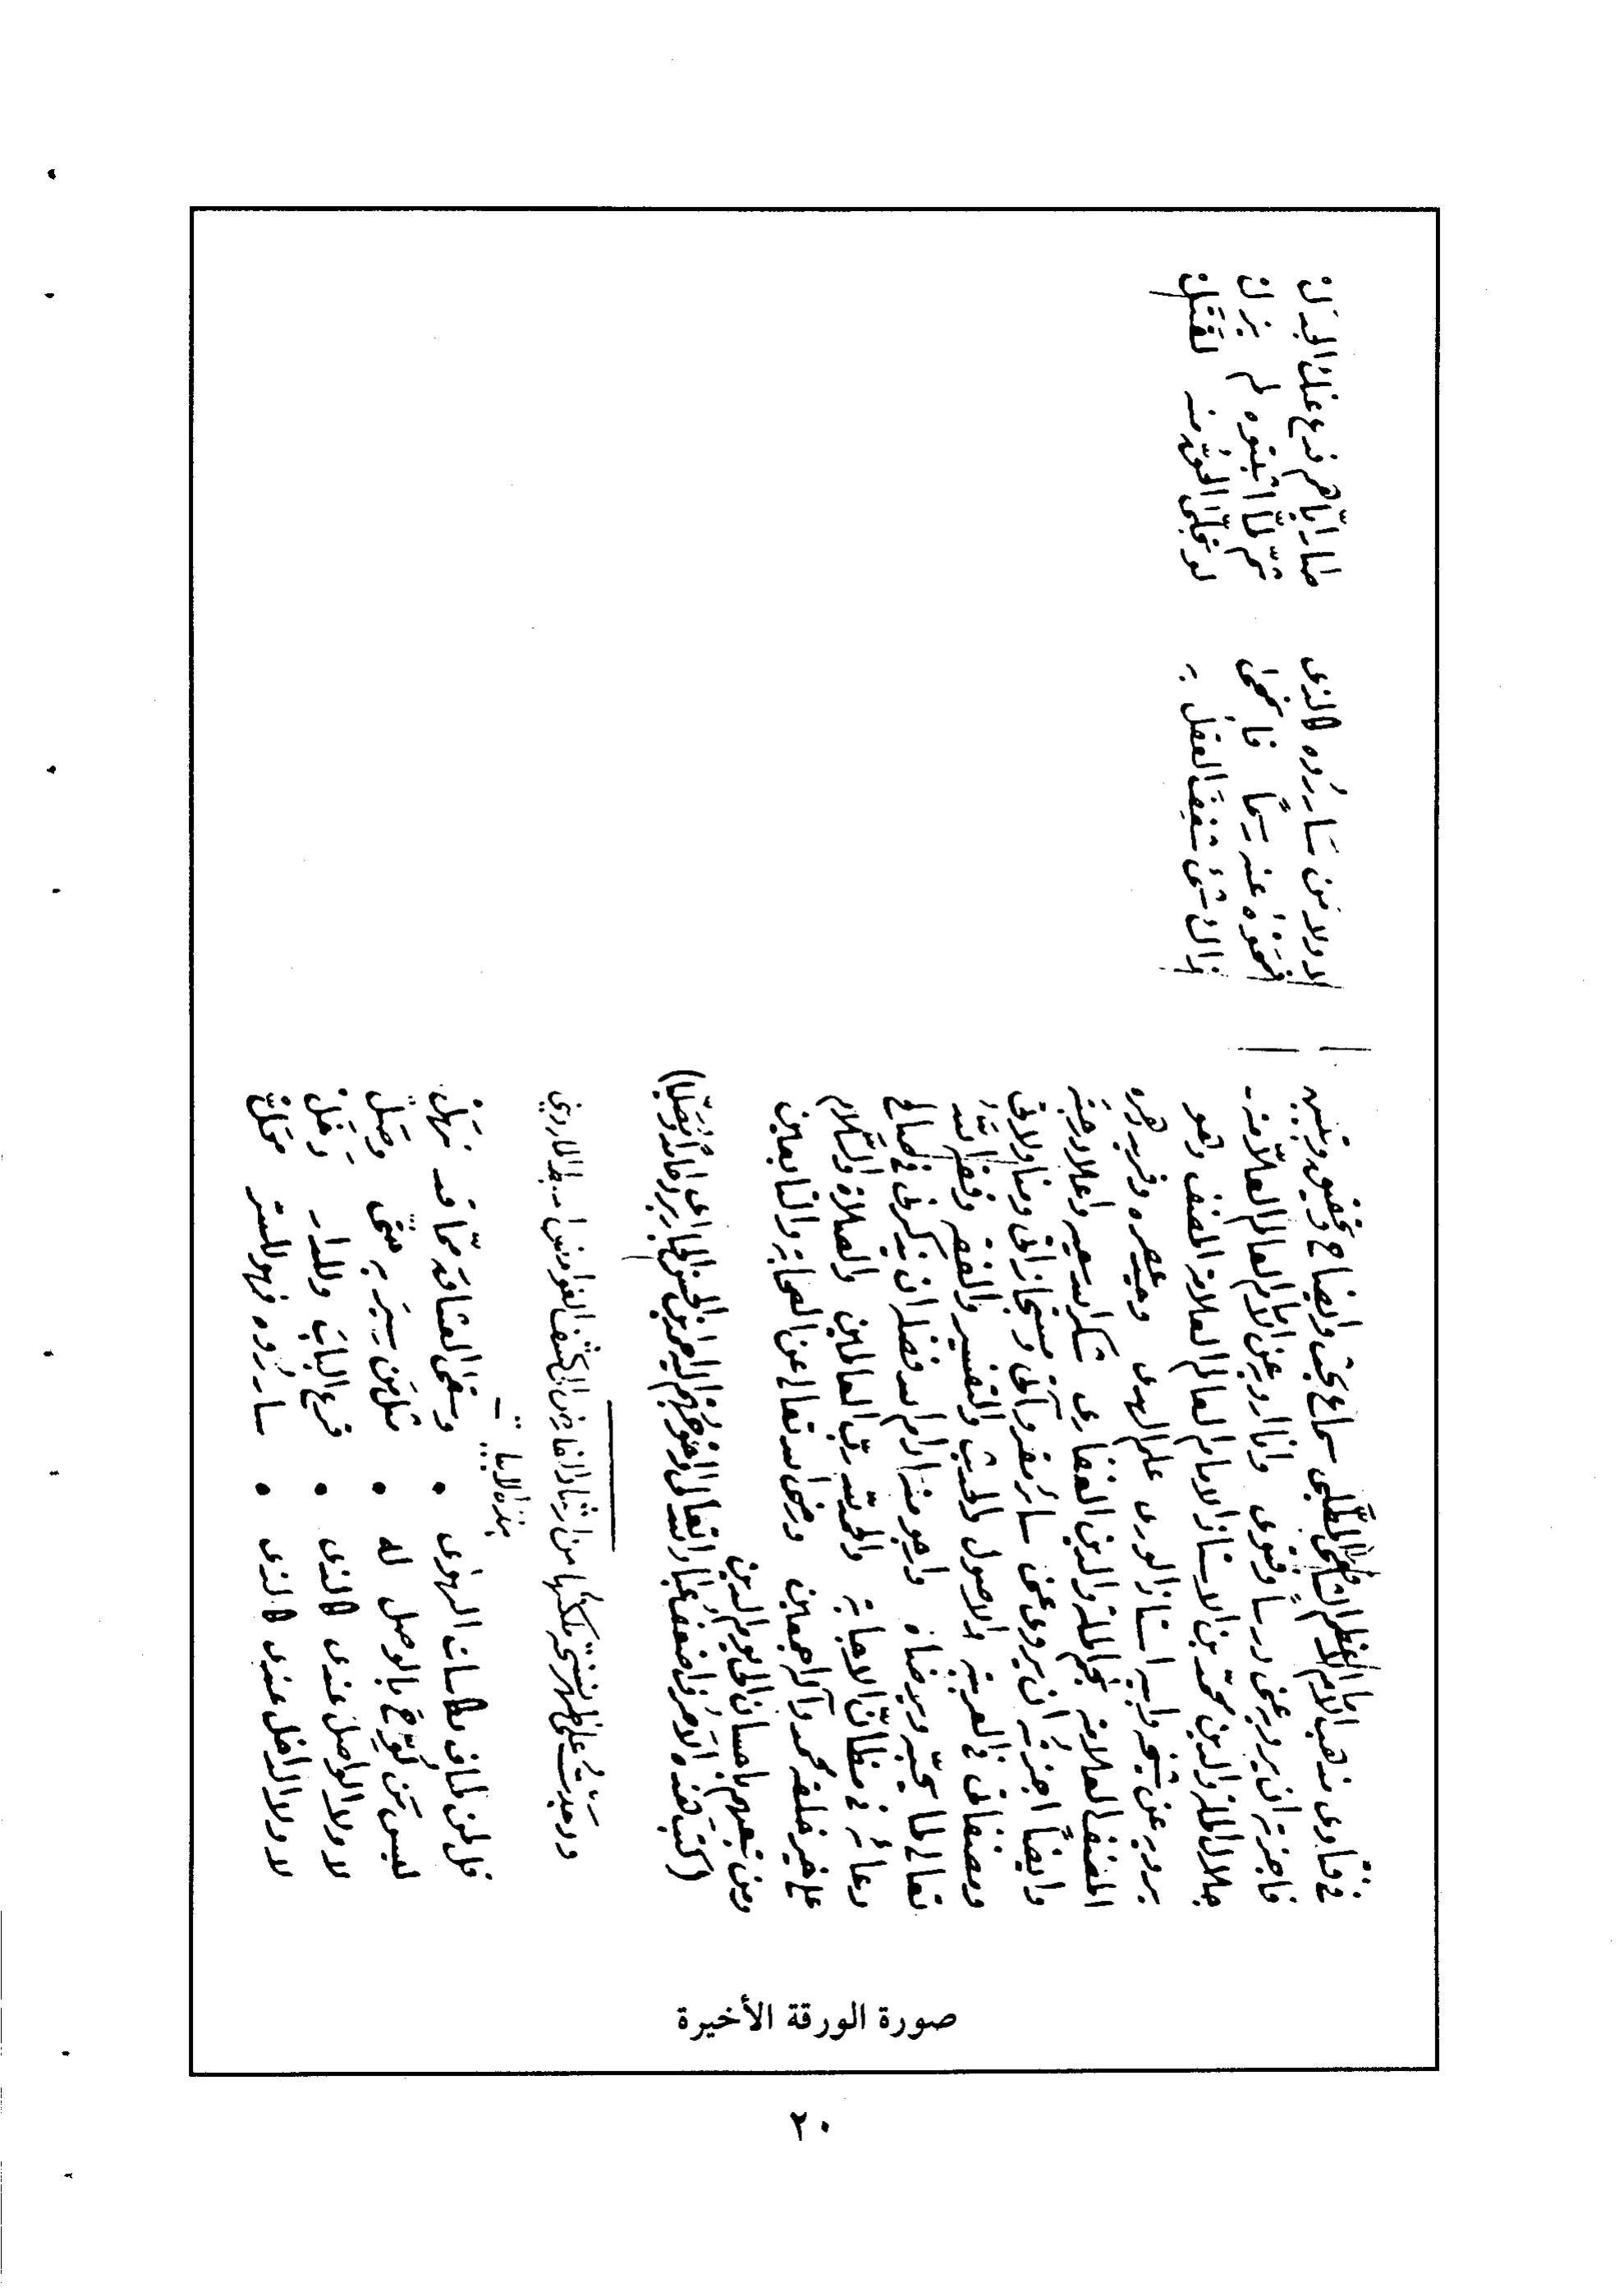 في فتاوى مذهب الامام الاعظم الشافعى المطلبى سماع بحث وايضاح وتحقيق وتبيين
فاجزته ان يرويه عنى درسا وفتوى وانا ارويه عن الامام العالم العلامة
جلال الملة والدين محمد بن الاستاذ الامام العالم العلامة المصنف وهو
يرويه عن شيخه وابيه استاذ الورى علم الهدى وحيد عصره وفريد دهره
المصنف العلامة نجم الملة والدين الغفارى شكر الله سعيه واعلا درجته
وايضا اجزته ان يروى عنى سائر مقروآتى ومستجازاتى ومناولاتى
ومصنفاتى فى العربية والاصول والحديث والتفسير والفقه وفقه الله
تعالى لما يحبه ويرضاه وارجو منه ادام الله فضله ان يذكرنى فى صالح
دعائه فى مظان الاجابة والحمد لله رب العالمين والصلاة والسلام
على خير خلقه محمد وآله اجمعين ورضى الله تعالى عن الصحابة والتابعين
ومن تبعهم باحسان الى يوم الدين
(كتب هذه الاحرف اضعف عباد الله تعالى واحوجهم اليه
ووجدت على ظهر نسخة
بهذه الابيات
قل لمن طاف بكاسات الهوى • وسقى العشاق مما قد نهل
ليس من لوح بالوصل له • مثل من سير به حتى وصل
لا ولا الواصل عندى كالذى • قرع الباب وللدار دخل
لا ولا الداخل عندى كالذى • سارروه فهو للسر محل
لا ولا من سارروه كالذى صار اياهم فدع عنك الجدل
فمحوه عنه ثم لما اثبتوه لم يزل
ذاك شىء شفيف العقل به لو تجلى
صورة الورقة الأخيرة
٢٠